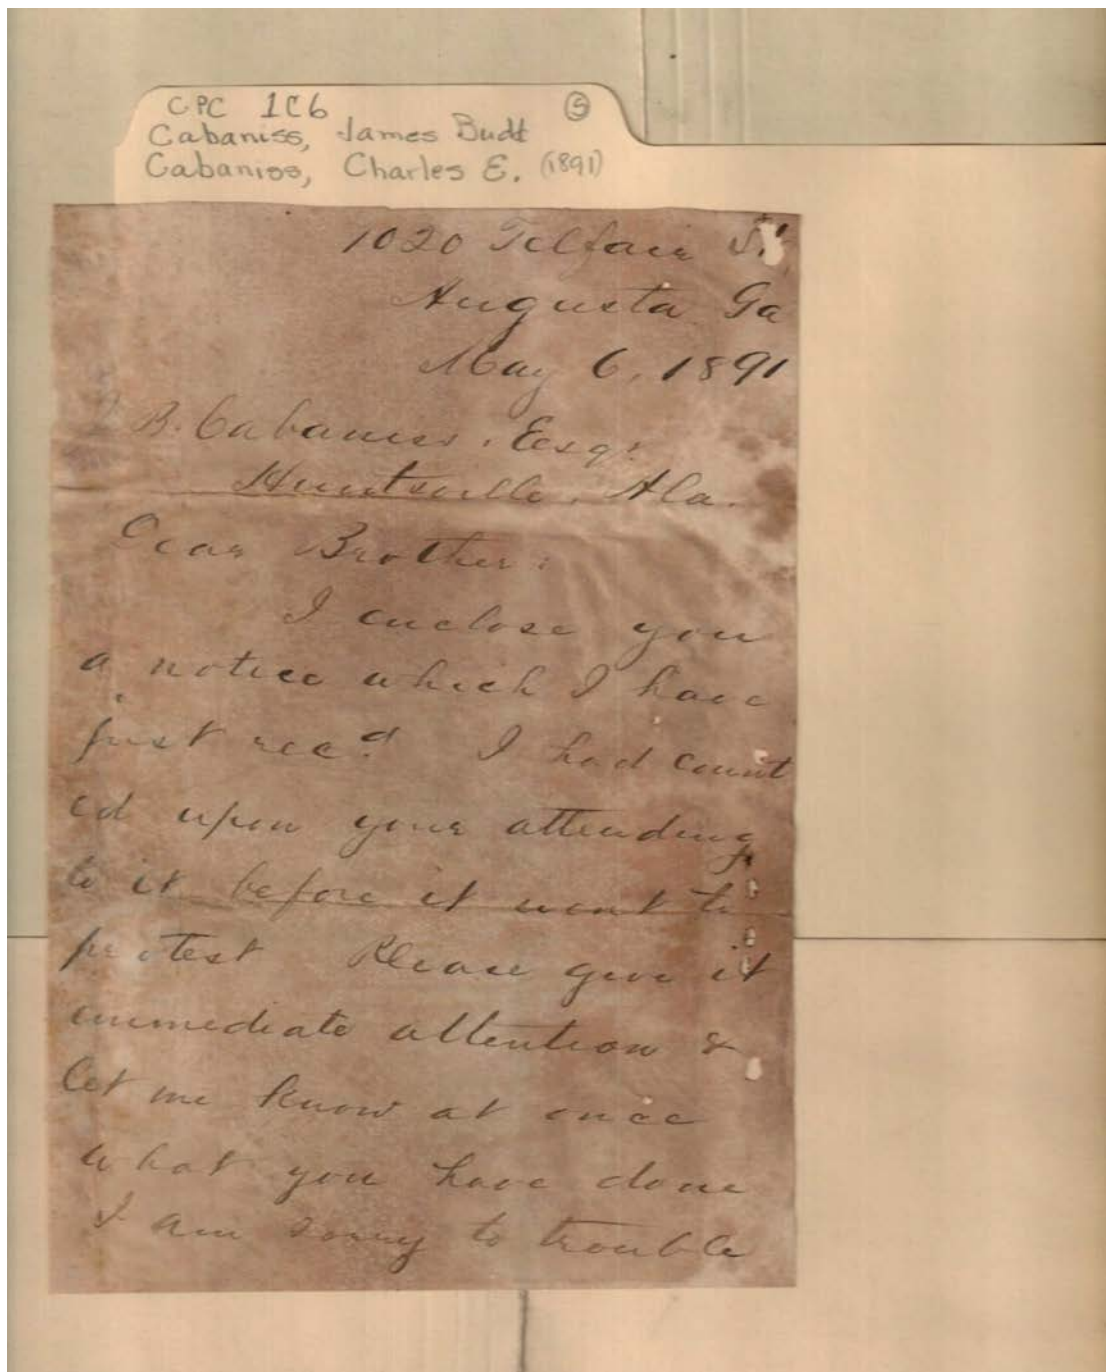 CPC 1C6 (5)
Cabaniss, James Budt
Cabaniss, Charles E. (1891)
1020 Telfair St.
Augusta Ga
May 6, 1891
J. B. Cabaniss, Esqr
Huntsville, Ala.
Dear Brother:
I enclose you
a notice which I have
just recd. I had count
ed upon your attending
to it before it went to
protest Please give it
immediate attention &
let me know at once
what you have done
I am sorry to trouble